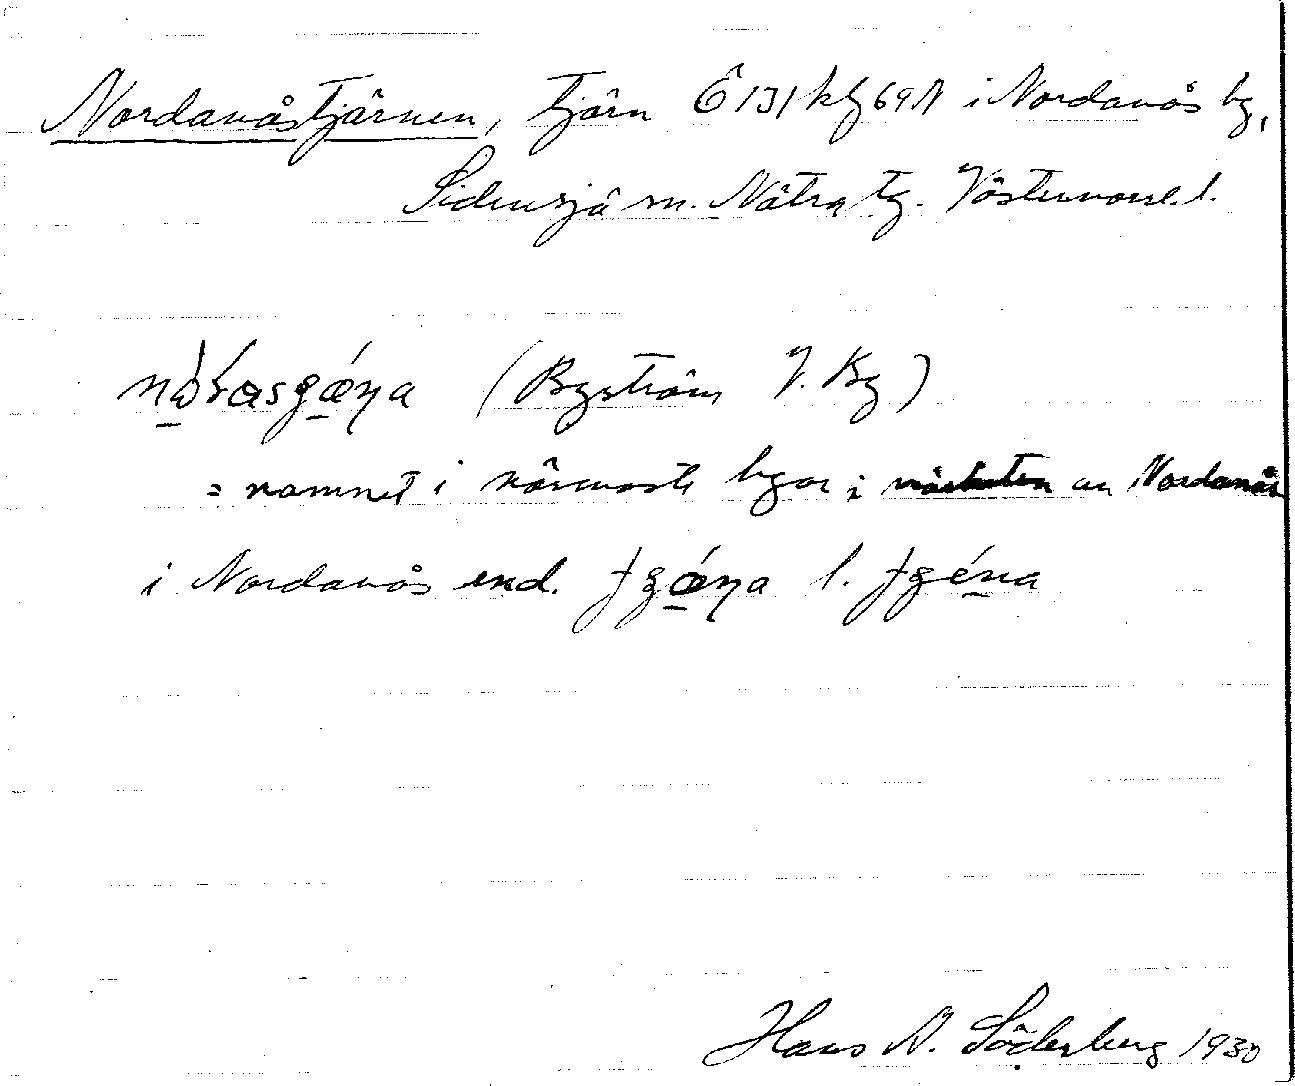 Nordanåstjärnen, tjärn Ö131kf69A i Nordanås by,
Sidensjö sn. Nätra tg. Västernorrl. l.
(Byström V. By)
= namnet i närmaste byar i närheten av Nordanås
i Nordanås end. l.
Hans A. Söderberg 1930